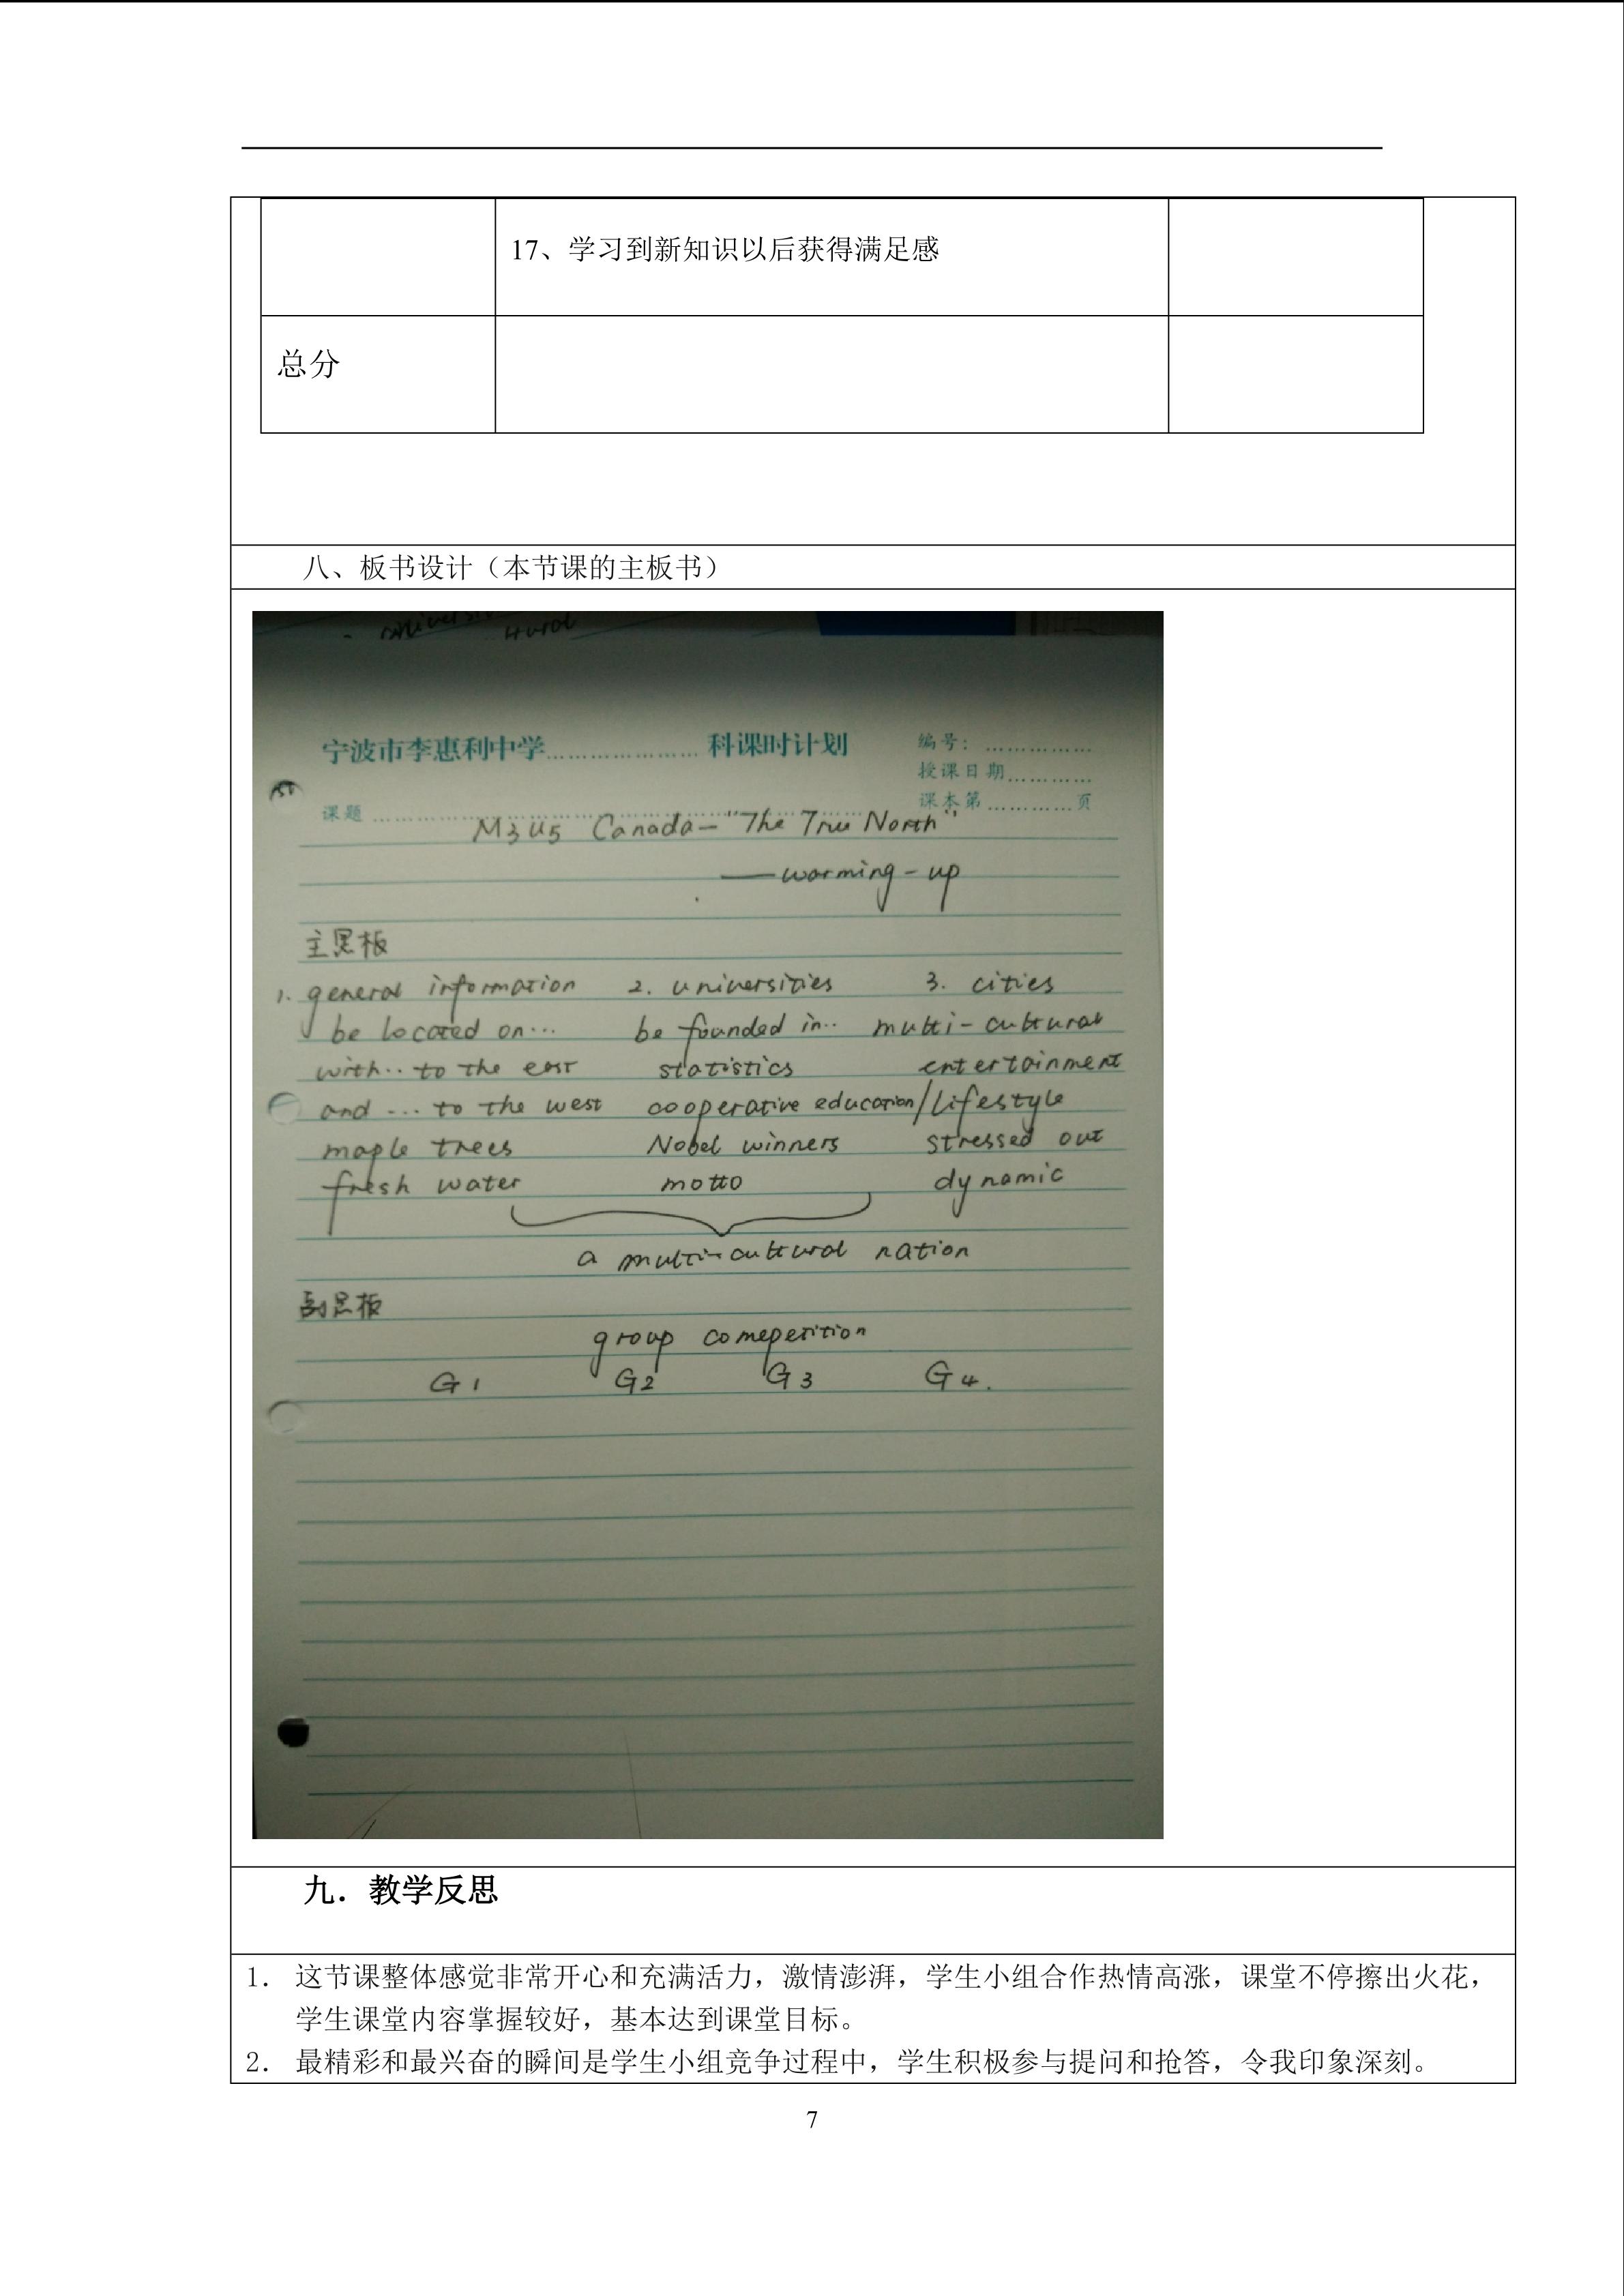 17、学习到新知识以后获得满足感
总分
八、板书设计（本节课的主板书）
宁波市李惠利中学………………… 科课时计划
编号：……………
授课日期…………
课本第…………页
课题
M3U5 Canada—"The True North"
——warming-up
主黑板
1. general information 2. universities 3. cities
be located on… be founded in.. multi-cultural
with.. to the east statistics entertainment
and … to the west cooperative education/lifestyle
maple trees Nobel winners stressed out
fresh water motto dynamic
a multi-cultural nation
副黑板
group comepetition
G1 G2 G3 G4.
九．教学反思
1. 这节课整体感觉非常开心和充满活力，激情澎湃，学生小组合作热情高涨，课堂不停擦出火花，
学生课堂内容掌握较好，基本达到课堂目标。
2. 最精彩和最兴奋的瞬间是学生小组竞争过程中，学生积极参与提问和抢答，令我印象深刻。
7